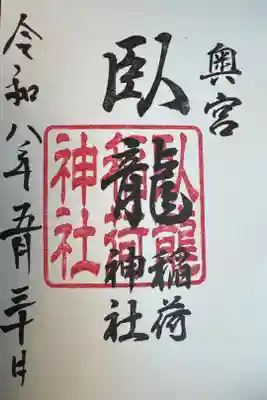 奥宮
臥龍稲荷神社
令和八年五月三十日
臥龍
稲荷
神社